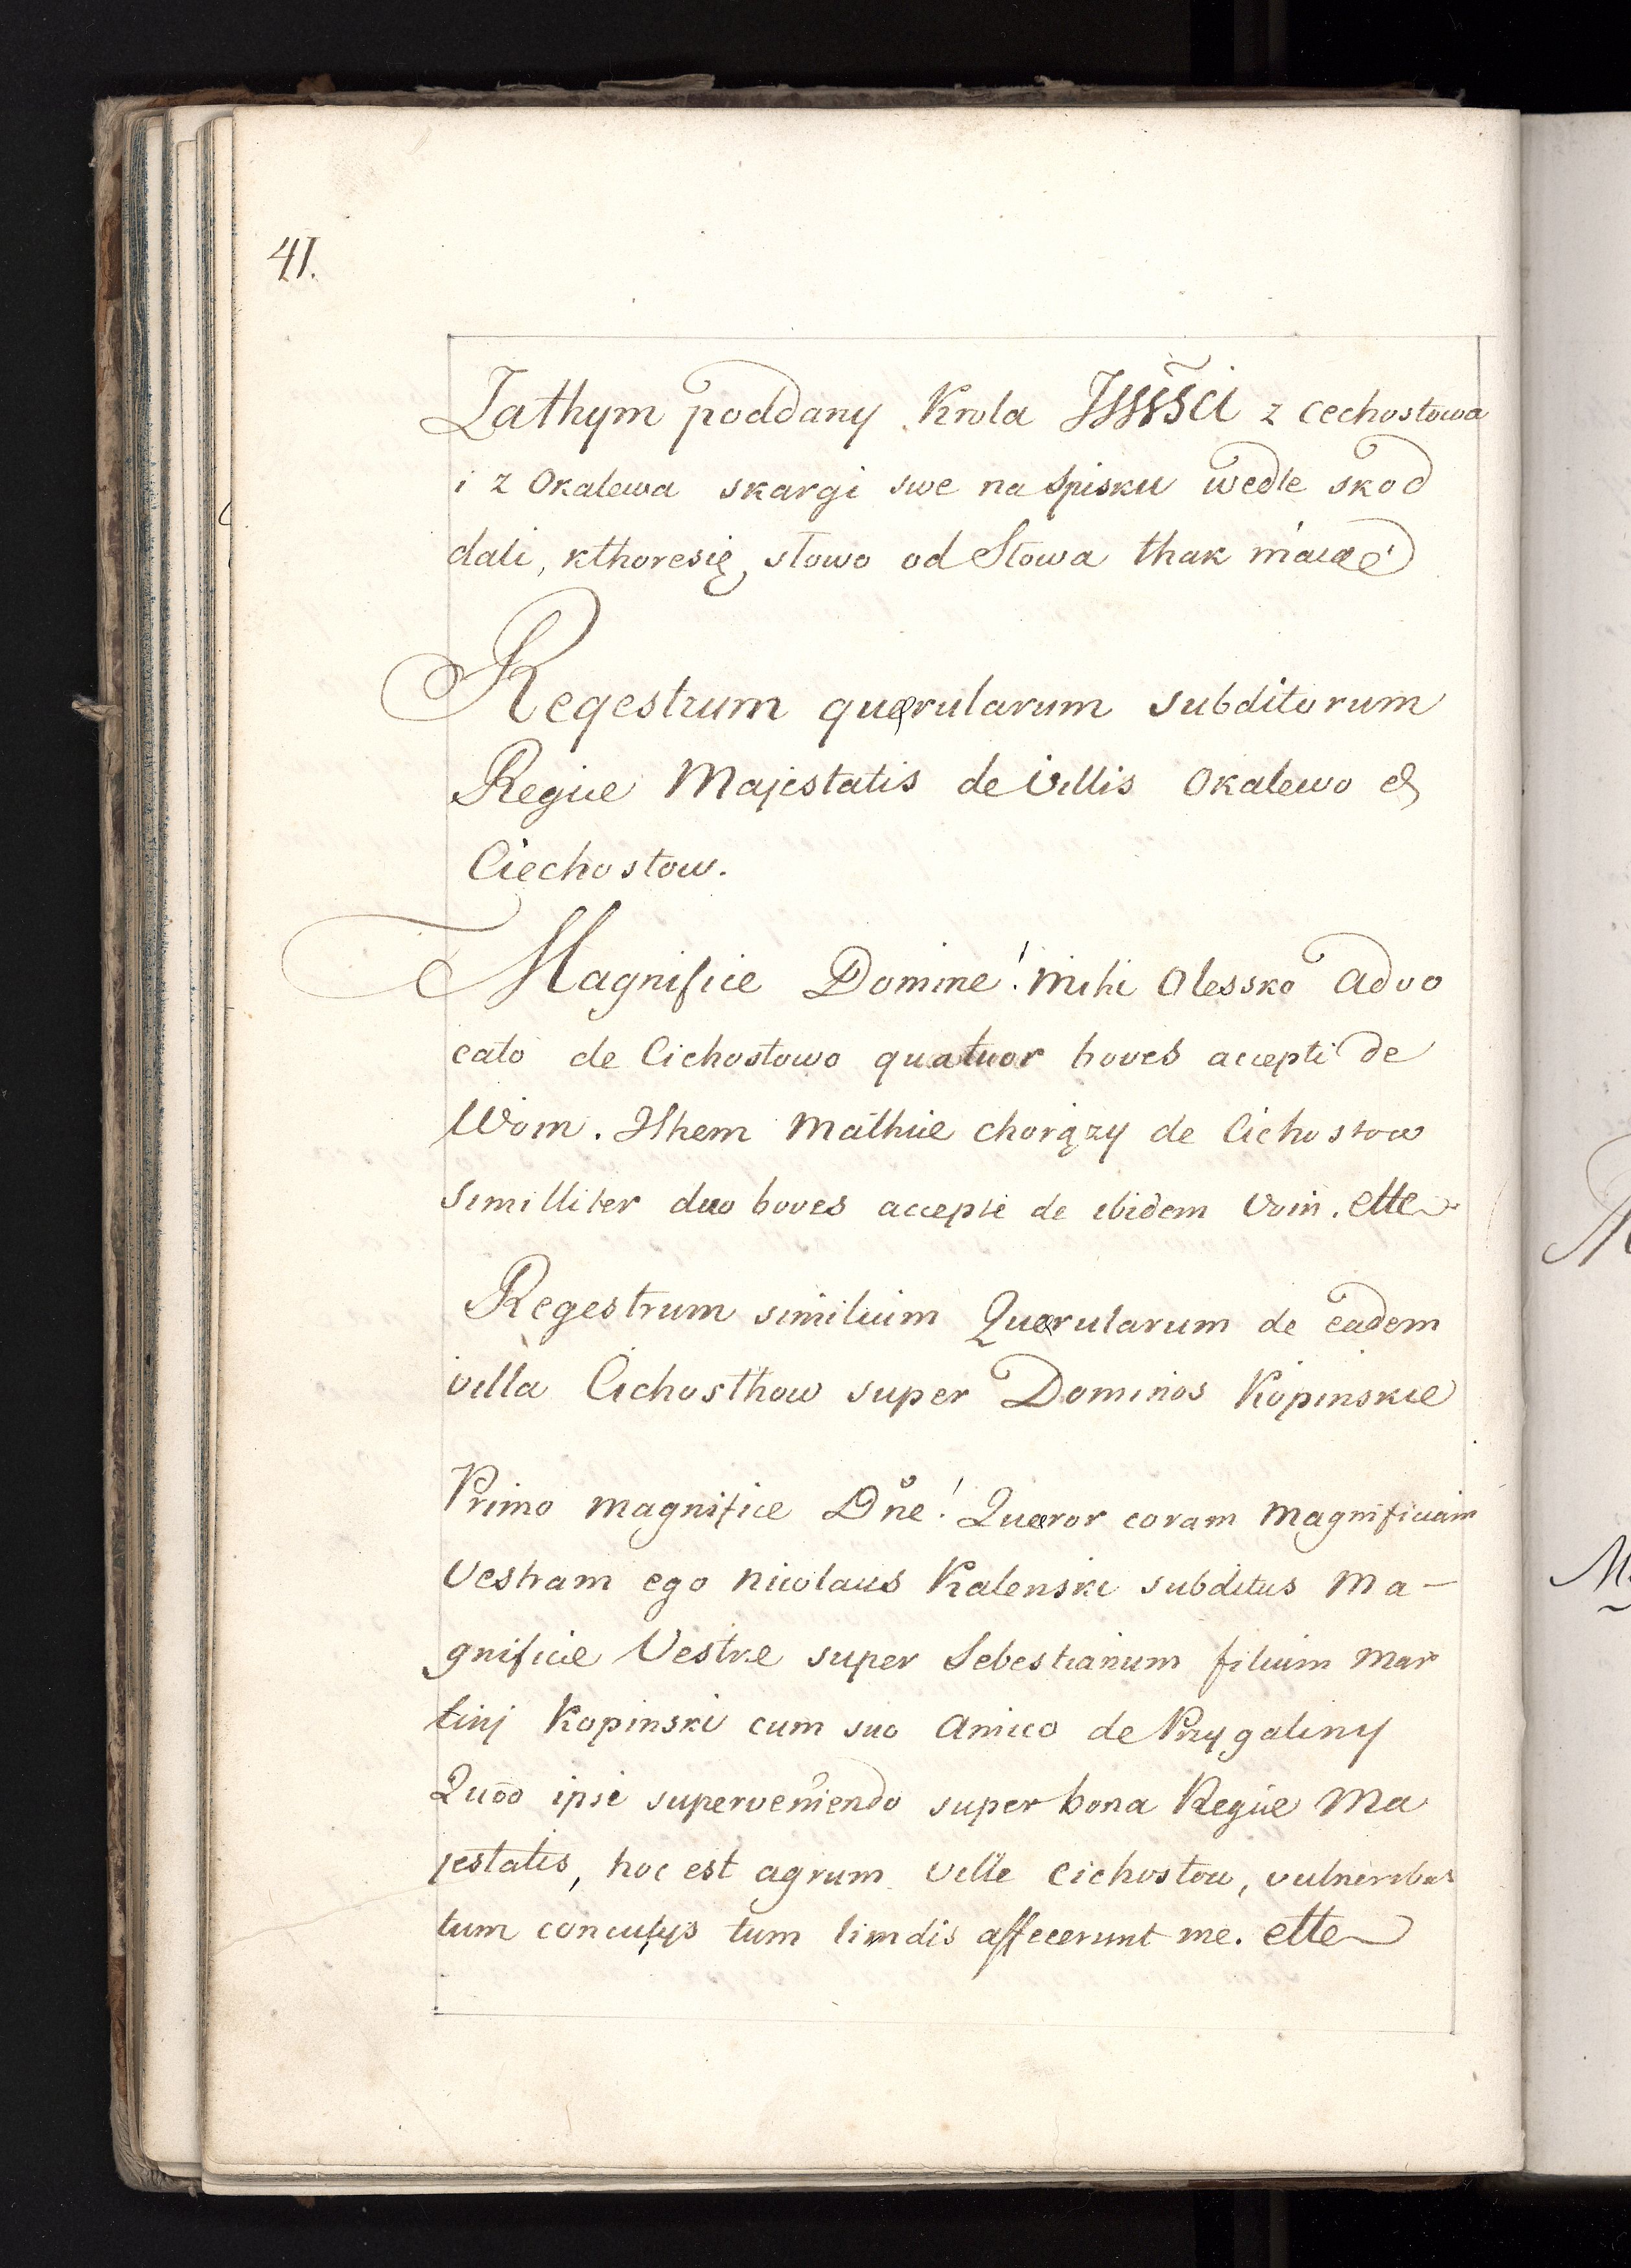 41.
Zathym poddany Krola z cechostowa
i z Okalewa skargi swe na Spisku wedle skod
dali, kthoresię słowo od Słowa thak
Regestrum querularum subditorum
Regie Majestatis de villis Okalewo &
Ciechostow.
Magnifice Domine! mihi Olessko advo
cato de Cichostowo quatuor boves accepti de
Woin. Ithem Mathie chorązy de Cichostow
Similliter duo boves accepti de ibidem Voin. ette
Regestrum similium Querularum de eadem
villa Cichosthow super Dominos Kopinskie
Primo magnifice Dne! Queror coram Magnificiam
Vestram ego Nicolaus Kalenski subditus Ma-
gnificie Vestre super Sebestianum filium Mar
tinj Kopinski cum suo Amico de Przygaliny
Quod ipsi superveniendo super bona Regie Ma
jestatis, hoc est agrum ville Cichostow, vulneribus
tum tum affecerunt me. ette